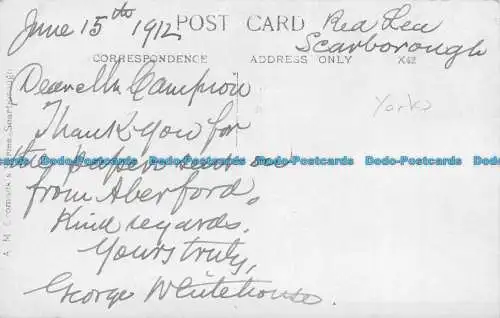 June 15th 1912 POST CARD Rea Lea
Scarborough
CORRESPONDENCE ADDRESS ONLY X42
Dear Mr Campion
Yorks
Thank you for
the papers sent on
from Aberford.
Kind regards.
Yours truly,
George Whitehouse.
Dodo-Postcards Dodo-Postcards Dodo-Postcards Dodo-Postcards Dodo-Postcards
Scarborough